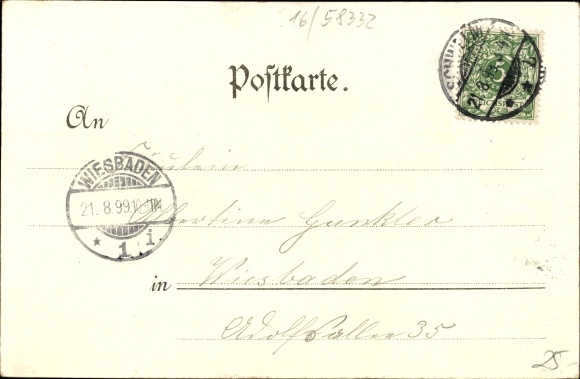 16/58332
5
21.8.99
Postkarte.
An
Fräulein
WIESBADEN
21.8.99.10-11N
* 1.i.
Albertine Gunkler
in Wiesbaden
Adolfsallee 35
25-